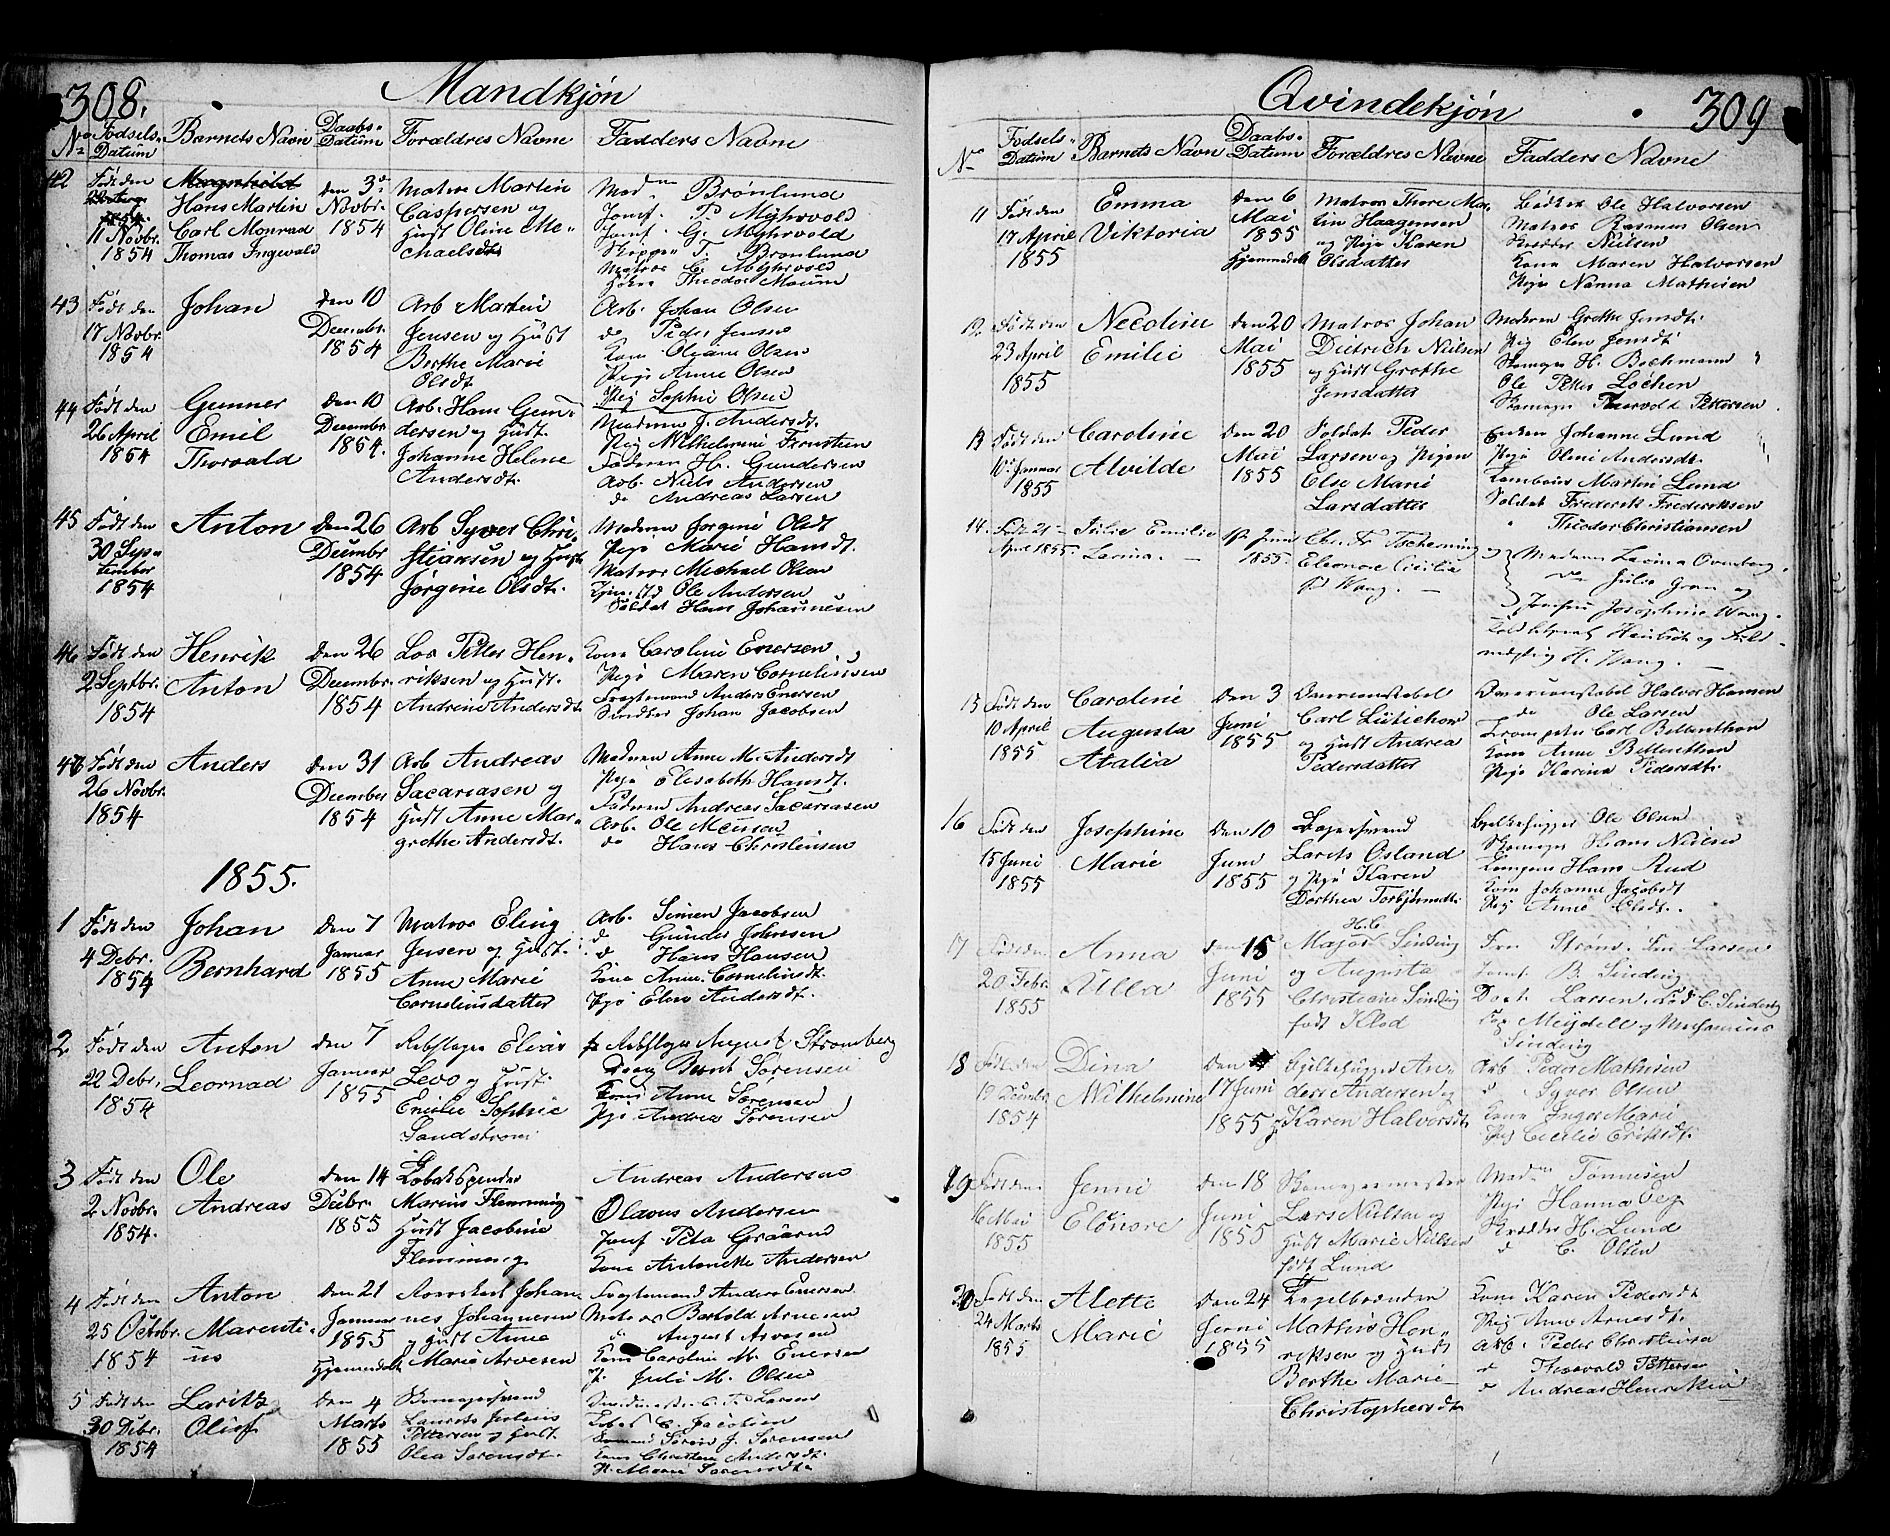 308.
Mandkjön
No Födsels-Datum Barnets Navn Daabs-Datum Forældres Navne Fadders Navne
42 Född den 11 Novbr. 1854
Hans Martin
Carl Monrad
Thomas Ingevald
den 3d Novbr. 1854
Matros Martin
Caspersen og
Hust Oline Me-
chaelsdt
Madm Brönlund
Jomf. P. Myhrvold
Jomf. G. Myhrvold
Skipper T. Brönlund
Matros C. Myhrvold
Theodor Maum
43 Född den 17 Novbr. 1854
Johan
den 10 Decembr. 1854
Arb Martin
Jensen og Hust
Berthe Marie
Olsdt
Arb. Johan Olsen
do Peder Jensen
Kone Oleane Olsen
Pige Anne Olsen
Pig Sophie Olsen
44 Född den 26 April 1854
Gunner
Emil
Thorvald
den 10 Decembr 1854.
Arb. Hans Gun-
dersen og Hust.
Johanne Helene
Andersdt.
Madmen J. Andersdt.
Pig Wilhelmine
Fadren H. Gundersen
Arb. Niels Andersen
do Andreas Larsen
45 Född den 30 Sep-tember 1854
Anton
den 26 Decembr 1854
Arb Syver Chri-
stiansen og Hust
Jörgine Olsdt.
Modren Jörgine Olsdt
Pige Marie Hansdt.
Matros Michael Olsen
Ole Andersen
Soldat Hans Johannesen
46 Född den 2 Septbr. 1854
Henrik
Anton
den 26 Decembr. 1854
Los Petter Hen-
riksen og Hust.
Andrine Andersdt
Kone Caroline Enersen
Pige Maren Cornelius&#101;n
Fogtemand Anders Enersen
Johan Jacobsen
47 Född den 26 Novbr. 1854
Anders
den 31 December 1854
Arb Andreas
Sacariasen og
Hust Anne Mar-
grethe Andersdt.
Modren Anne M. Andersdt
Pige Elisabeth Hansdt.
Fadren Andreas Sacariasen
Arb. Ole
do Hans Christensen
1855.
1 Född den 4 Debr. 1854
Johan
Bernhard
den 7 Januar 1855
Matros Eling
Jensen og Hust
Anne Marie
Corneliusdatter
Arb. Simen Jacobsen
d. Gunder Johnsen
d Hans Hansen
Kone Anne Corneliusdt.
Pige Elen Andersdt.
2 Född den 22 Debr. 1854
Anton
Leornad
den 7 Januar 1855
Rebslager Elias
Levo og Hust.
Emilie Sophie
Sandström
Rebslager August Strömberg
Dreng Bernt Sörensen
Kone Anne Sörensen
Pige Andrea Sörensen
3 Född den 2 Novbr. 1854.
Ole
Andreas
den 14 Debr. 1855
Tobakspinder
Marius Flemming
Hust Jacobine
Flemming
Andreas Andersen
Olavus Andersen
Jomf. Petra
Kone Antonette Andersen
4 Född den 25 Octobr. 1854
Anton
Marenti-
us
den 21 Januar 1855
Hjemmedöbt
Johan-
nes Johannesen
og Hust Anne
Marie Arvesen
Fogtemand Anders Enersen
Matros Bertold Arnesen
" August Arvesen
Kone Caroline M. Enersen
P. Julie M. Olsen
5 Född den 30 Debr. 1854
Laritz
Oluf
den 4 Marts 1855
Skomagersvend
Laurits Julius
Pettersen og Hust.
Olea Sörensdt.
C. F. Larsen
C. Jacobsen
Sören J. Sörensen
Kone Christine Andersdt.
H. Marie Sörensdtr
309
Qvindekjön
No Födsels-Datum Barnets Navn Daabs-Datum Forældres Navne Fadders Navne
11 Född den 17 April 1855
Emma
Viktoria
den 6 Mai 1855 Hjemmedöbt
Matros Thore Mar-
tin Haagensen
og Pige Karen
Olsdatter
Bödker Ole Halvorsen
Matros Rasmus Olsen
Skredder Nielsen
Kone Maren Halvorsen
Pige Nanna Mathisen
12 Född den 23 April 1855
Necoline
Emilie
den 20 Mai 1855
Matros Johan
Dietrich Nielsen
og Hust Grethe
Jensdatter
Modren Grethe Jensdt.
Pig Elen Jensdt
Skomager H. Bechmann
Ole Petter Löchen
Skomager Thorvald Pettersen
13 Född den 10 Januar 1855
Caroline
Alvilde
den 20 Mai 1855
Soldat Peder
Larsen og Pigen
Else Marie
Larsdatter
Enken Johanne Lund
Pige Oline Andersdt.
Martin Lund
Soldat Frederik Frederiksen
" Theodor Christiansen
14. Född 21 April 1855.
Julie Emilie
Lovisa.
Juni 1855.
Chr. Fr Tscherning
Eleonore Cecilie
fd Wang.
Madame Lovisa
Julie Gran og
Josephine Wang.
og
H. Wang.
15 Född den 10 April 1855
Caroline
Augusta
Atalia
den 3 Juni 1855
Carl Lütichow
og Hust Andrea
Pedersdatter
Halvor Hansen
do Ole Larsen
Trompeter Carl Bittenthon
Kone Anne Bittenthon
Pige Karina Pedersdt.
16 Född den 15 Juni 1855
Josephine
Marie
den 10 Juni 1855
Bagersvend
Larits Osland
og Pige Karen
Dorthea Torbjörnsdt.
Bjelkehugger Ole Olsen
Skomager Hans Nielsen
Hans Rud
Kone Johanne Jacobsdt
Pig Anne Olsdt.
17 Född den 20. Febr. 1855
Anna
Ulla
den 15 Juni 1855
Major H.C. Sinding
og Augusta
Christiane Sinding
född Klod
Fru Ström. Fru Larsen
Jomf. B. Sinding
Larsen,
Meydell og
Sinding
18 Född den 19 Decembr. 1854
Dina
Wilhelmine
den 17 Juni 1855
Bjelkehugger An-
ders Andersen og
Karen Halvorsdt
Arb Peder Mathisen
d Syver Olsen
Kone Inger Marie
Pig Cecilie Eriksdt.
19 Född den 6 Mai 1855
Jenni
Elenore
den 18 Juni 1855
Skomagermester
Lars Nielsen og
Hust Marie Nielsen
född Lund
Madm Tönnesen
Pige Hanna
Skredder H. Lund
d C. Olsen
20 Född den 24 Marts 1855
Alette
Marie
den 24 Juni 1855
Teglbrænder
Mathis Hen-
riksen og Hust
Berthe Marie
Christophersdt.
Kone Karen Pedersdt
Pig Anne Arnesdt.
Arb. Peder Christensen
d Thorvald Pettersen
d Andreas Henriksen